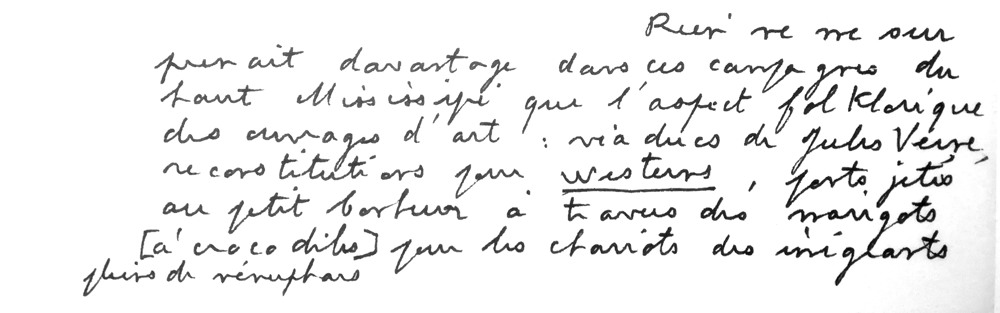 Rien ne me sur
prenait davantage dans ces campagnes du
haut Mississipi que l'aspect folklorique
des ouvrages d'art : viaducs de Jules Verne,
reconstitutions pour westerns, ponts jetés
au petit bonheur à travers des marigots
[à crocodiles] pour les chariots des émigrants
pleins de nénuphars